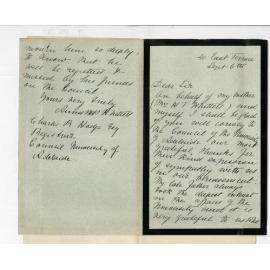 East Terrace
Sept 6th
Dear Sir
On behalf of my mother
(Mrs H T Whittell) and
myself I shall be glad
if you will convey to
the Council of the University
of Adelaide our most
grateful thanks for
their kind expression
of sympathy with us
in our bereavement.
My late father always
took the deepest interest
in the affairs of the
University and it is
very grateful to us who
mourn him so deeply
to know that he
will be regretted &
missed by his friends
on the Council
Yours very truly
Whittell
Charles R Hodge Esq
Registrar
Council University of
Adelaide